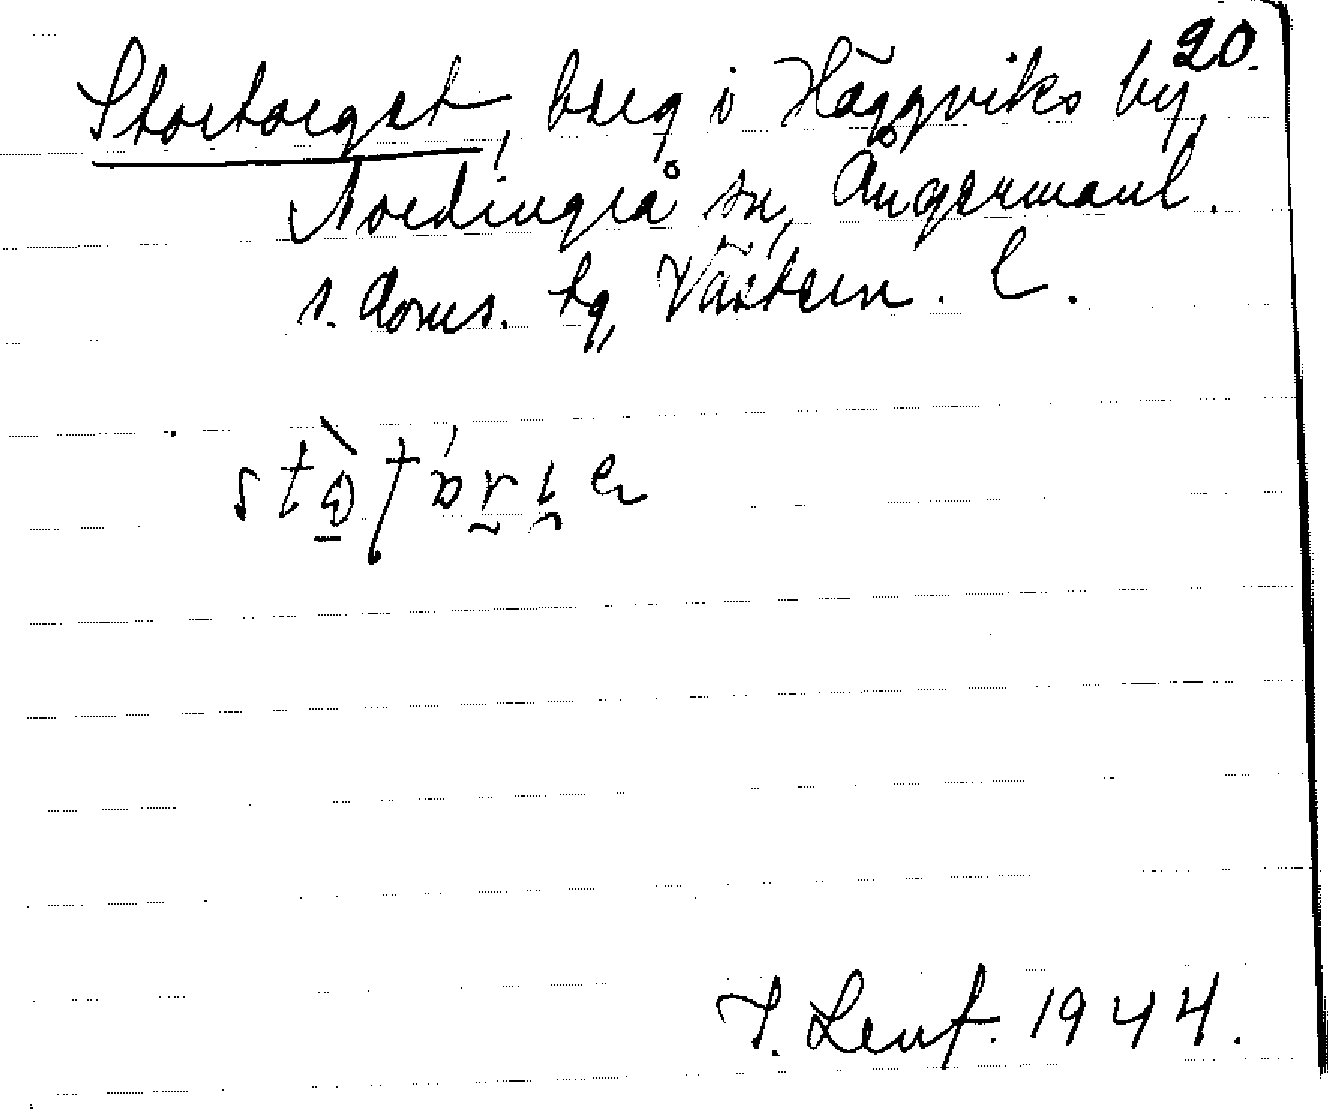 20.
Stortorget, berg i Häggviks by,
Nordingrå sn, Ångermanl.
s. doms. tg, Västern. l.
T. Lenf. 1944.